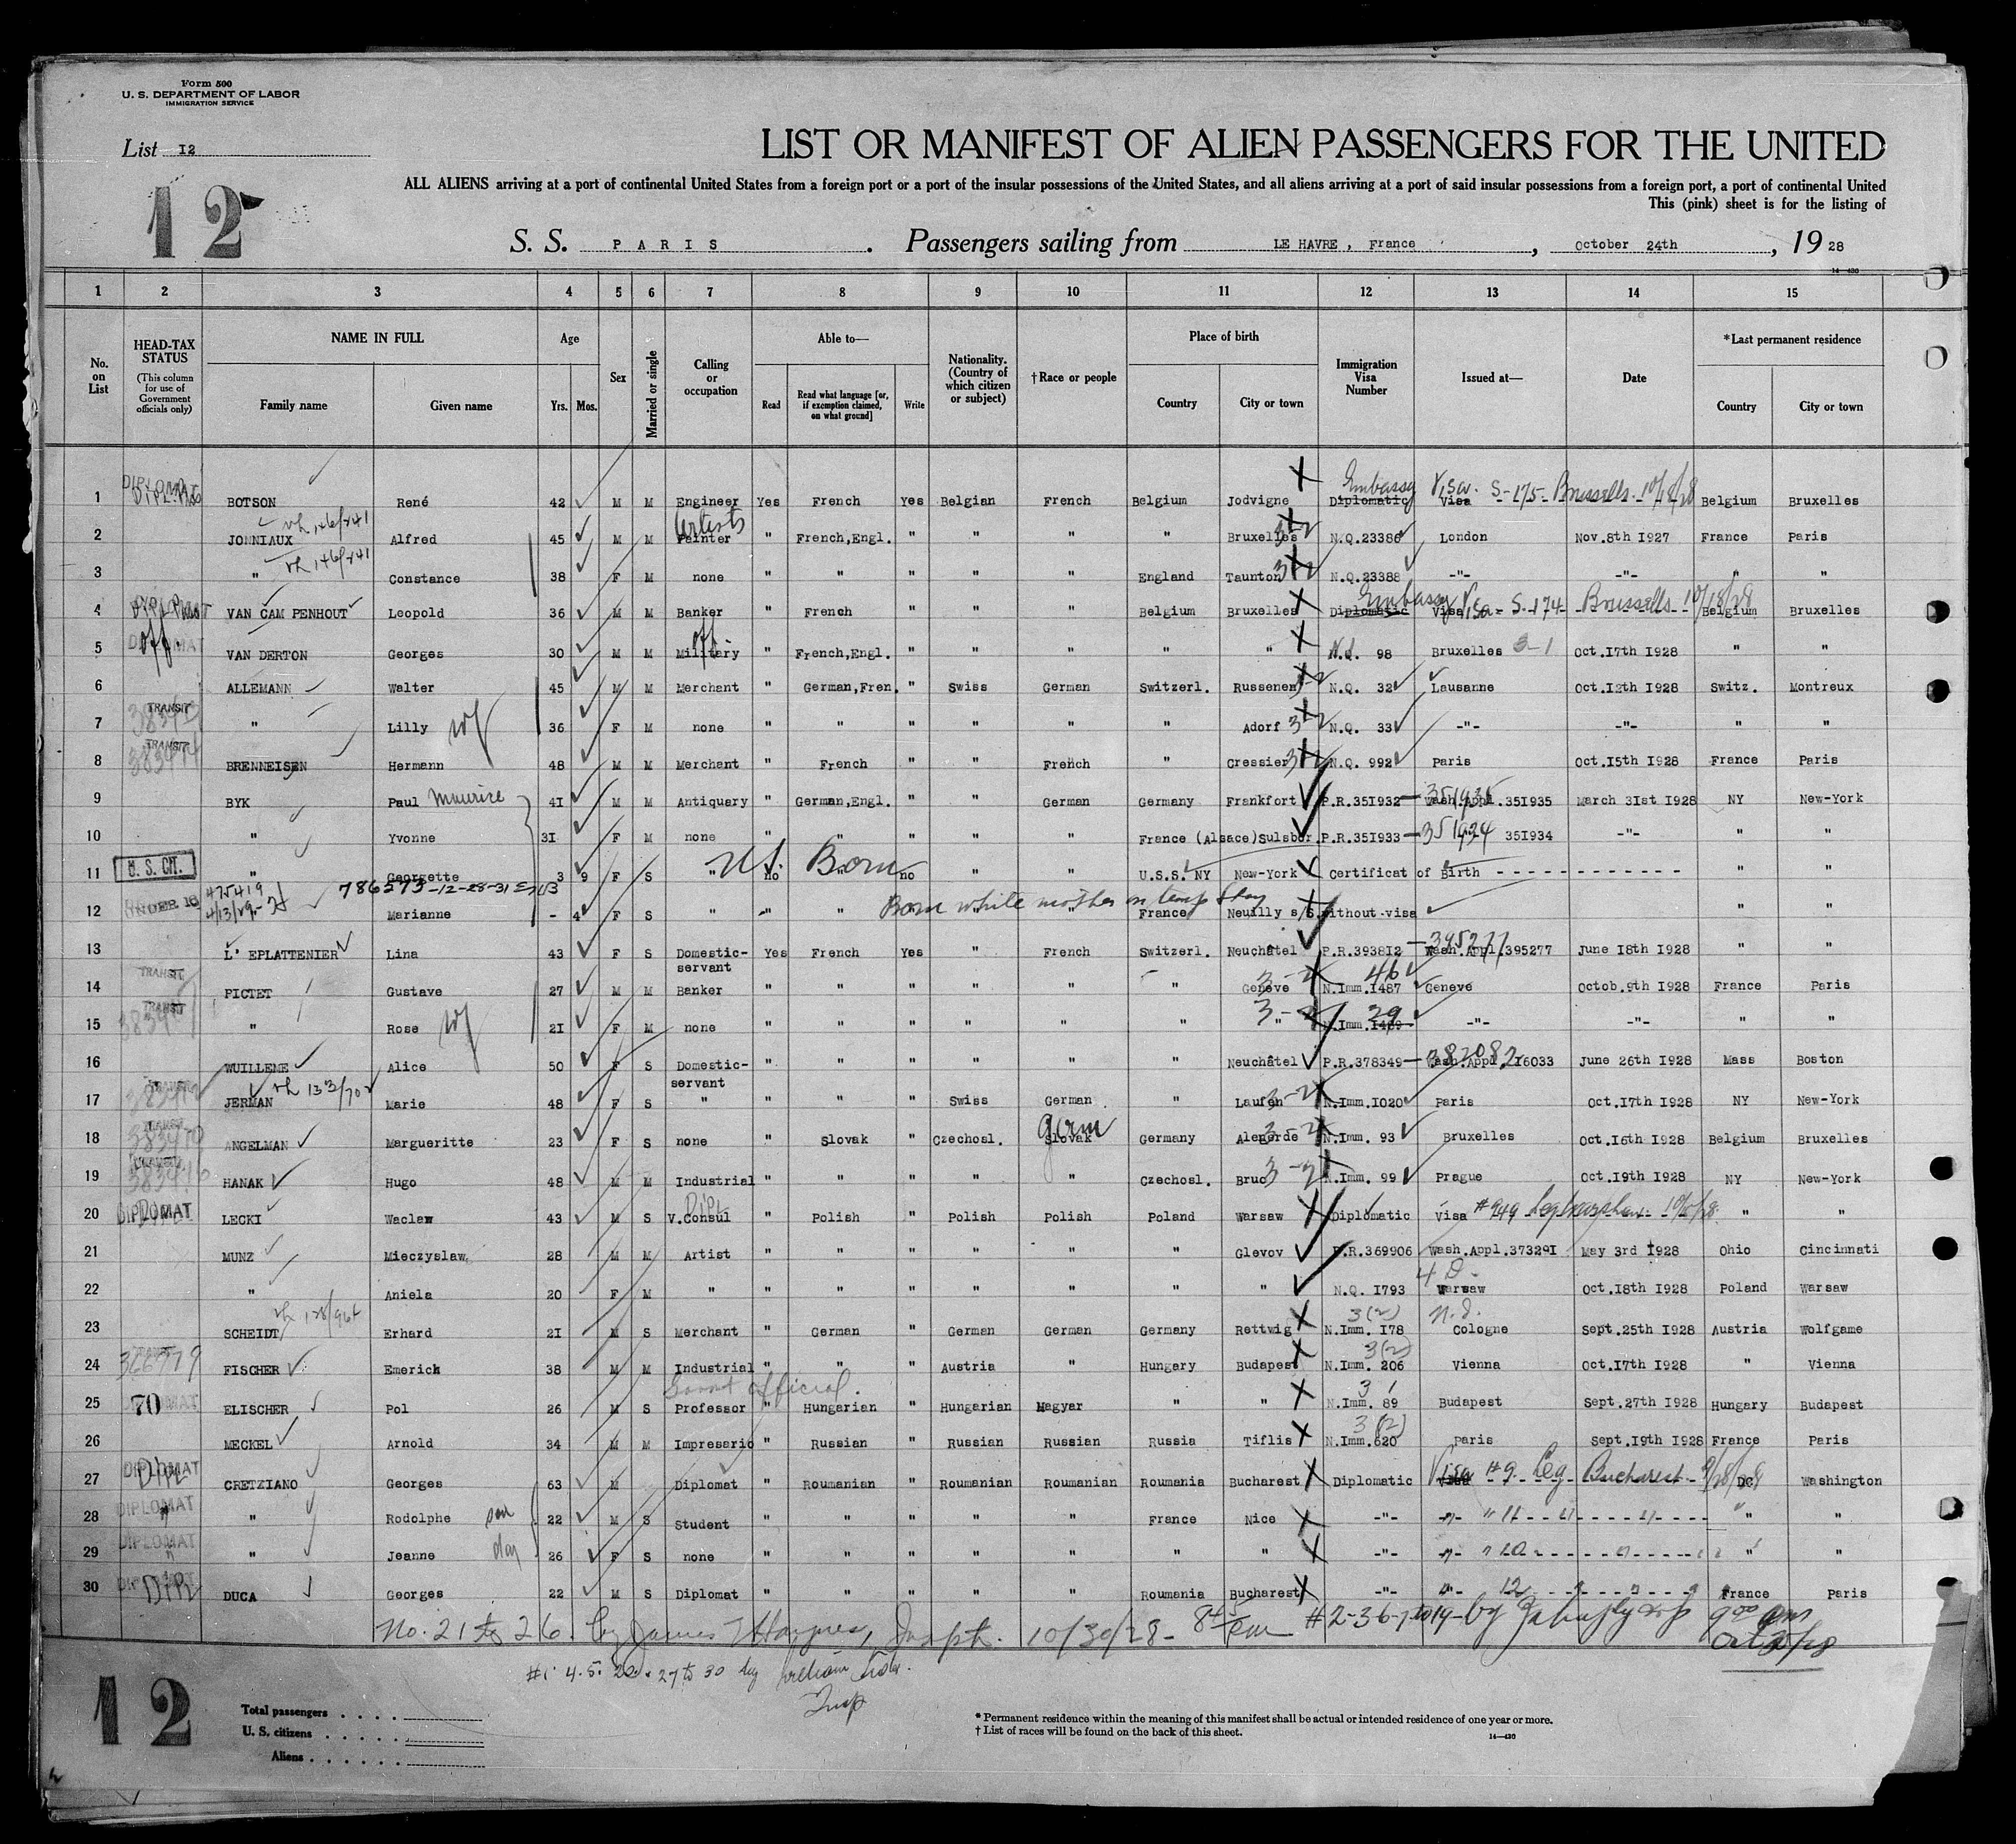 Form 500
U. S. DEPARTMENT OF LABOR
IMMIGRATION SERVICE
List I2
LIST OR MANIFEST OF ALIEN PASSENGERS FOR THE UNITED
ALL ALIENS arriving at a port of continental United States from a foreign port or a port of the insular possessions of the United States, and all aliens arriving at a port of said insular possessions from a foreign port, a port of continental United
This (pink) sheet is for the listing of
12
S. S. PARIS. Passengers sailing from LE HAVRE, France, October 24th, 19 28
14-430
1 2 3 4 5 6 7 8 9 10 11 12 13 14 15
No. on List
HEAD-TAX STATUS (This column for use of Government officials only)
NAME IN FULL Family name Given name
Age Yrs. Mos.
Sex
Married or single
Calling or occupation
Able to— Read Read what language [or, if exemption claimed, on what ground] Write
Nationality. (Country of which citizen or subject)
†Race or people
Place of birth Country City or town
Immigration Visa Number
Issued at—
Date
*Last permanent residence Country City or town
1 DIPLOMAT BOTSON René 42 M M Engineer Yes French Yes Belgian French Belgium Jodvigne Diplomatic Embassy Visa Visa. S-175- Brussells. 10/18/28 Belgium Bruxelles
2 JONNIAUX 146/241 Alfred 45 M M Painter Artists " French,Engl. " " " " Bruxelles 3-2 N.Q.23386 London Nov.8th I927 France Paris
3 " 146/241 Constance 38 F M none " " " " " England Taunton 3-2 N.Q.23388 -"- -"- " "
4 DIPLOMAT VAN CAM PENHOUT Leopold 36 M M Banker " French " " " Belgium Bruxelles Diplomatic Embassy Visa Visa - S-174- Brussells 10/18/28 Belgium Bruxelles
5 DIPLOMAT Off. VAN DERTON Georges 30 M M Military Off " French,Engl. " " " " " 98 Bruxelles 3-1 Oct.I7th I928 " "
6 ALLEMANN Walter 45 M M Merchant " German,Fren. " Swiss German Switzerl. Russenen 3-2 N.Q. 32 Lausanne Oct.I2th I928 Switz. Montreux
7 TRANSIT " Lilly wf 36 F M none " " " " " " Adorf 3-2 N.Q. 33 -"- -"- " "
8 TRANSIT BRENNEISEN Hermann 48 M M Merchant " French " " French " Cressier 3-2 N.Q. 992 Paris Oct.I5th I928 France Paris
9 BYK Paul Maurice 4I M M Antiquary " German,Engl. " " German Germany Frankfort P.R.35I932 - 351935 Wash.Appl.35I935 March 3Ist I928 NY New-York
10 " Yvonne 3I F M none " " " " " France (Alsace) Sulsbor. P.R.35I933 - 351934 35I934 -"- " "
11 U. S. CIT. " Georgette 3 9 F S " no US. Born no " " U.S.S. NY New-York Certificat of Birth " "
12 UNDER 16 475419 4/13/29 786573-12-28-31 Marianne - 4 F S " " " Born white mother on temp stay " " France Neuilly s/S. without visa " "
13 L' EPLATTENIER Lina 43 F S Domestic-servant Yes French Yes " French Switzerl. Neuchâtel P.R.3938I2 - 395277 Wash.Appl.395277 June I8th I928 " "
14 TRANSIT PICTET Gustave 27 M M Banker " " " " " " Genève 3-2 N.Imm.I487 46 Geneve Octob.9th I928 France Paris
15 TRANSIT " Rose wf 2I F M none " " " " " " " 3-2 N.Imm.I489 29 -"- -"- " "
16 WUILLEME Alice 50 F S Domestic-servant " " " " " " Neuchâtel P.R.378349 - 382082 Wash.Appl.2I6033 June 26th I928 Mass Boston
17 JERMAN 133/702 Marie 48 F S " " " " Swiss German " Laufen 3-2 N.Imm.I020 Paris Oct.I7th I928 NY New-York
18 ANGELMAN Margueritte 23 F S none " Slovak " Czechosl. Slovak Germ Germany Alenerde 3-2 N.Imm. 93 Bruxelles Oct.I6th I928 Belgium Bruxelles
19 HANAK Hugo 48 M M Industrial " " " " " Czechosl. Bruc 3-2 N.Imm. 99 Prague Oct.I9th I928 NY New-York
20 DIPLOMAT LECKI Waclaw 43 M S V.Consul Dipl " Polish " Polish Polish Poland Warsaw Diplomatic Visa #949 " "
21 MUNZ Mieczyslaw 28 M M Artist " " " " " " Glevov P.R.369906 Wash.Appl.37329I May 3rd I928 Ohio Cincinnati
22 " Aniela 20 F M " " " " " " " " N.Q. I793 4 D. Warsaw Oct.I8th I928 Poland Warsaw
23 SCHEIDT 128/964 Erhard 2I M S Merchant " German " German German Germany Rettwig 3(2) N.Imm. I78 Cologne Sept.25th I928 Austria Wolfgame
24 366979 FISCHER Emerich 38 M M Industrial " " " Austria " Hungary Budapest 3(2) N.Imm. 206 Vienna Oct.I7th I928 " Vienna
25 70 ELISCHER Pol 26 M S Professor Govmt official. " Hungarian " Hungarian Magyar " " 3 1 N.Imm. 89 Budapest Sept.27th I928 Hungary Budapest
26 MECKEL Arnold 34 M M Impresario " Russian " Russian Russian Russia Tiflis 3(2) N.Imm.620 Paris Sept.I9th I928 France Paris
27 DIPLOMAT Dipl CRETZIANO Georges 63 M Diplomat " Roumanian " Roumanian Roumanian Roumania Bucharest Diplomatic Visa #9. Leg Bucharest 9/28/28 DC Washington
28 DIPLOMAT " Rodolphe son 22 M S Student " " " " " France Nice -"- " 11 " " "
29 DIPLOMAT " Jeanne 26 F S none " " " " " " " -"- " 10 " " "
30 DIPLOMAT Dipl DUCA Georges 22 M S Diplomat " " " " " Roumania Bucharest -"- " 12 " France Paris
No. 21 to 26. by James T Haynes, Inspt. 10/30/28-
#1. 4. 5. 20. 27 to 30 by
Insp
12
Total passengers
U. S. citizens
Aliens
* Permanent residence within the meaning of this manifest shall be actual or intended residence of one year or more.
† List of races will be found on the back of this sheet.
14-430